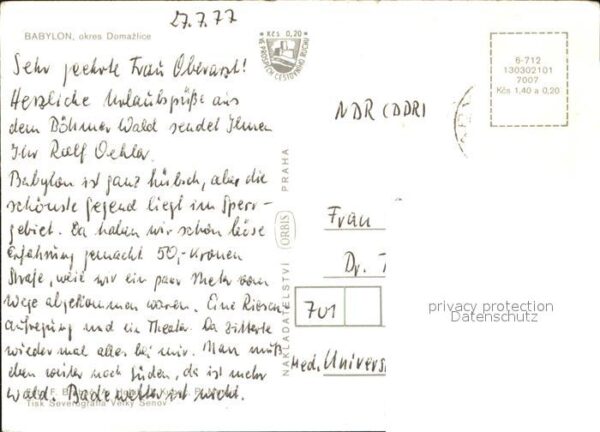 27.7.77
BABYLON, okres Domažlice
Kčs 0,20
Sehr geehrte Frau Oberarzt!
Herzliche Urlaubsgrüße aus
dem Böhmer Wald sendet Ihnen
Ihr Rolf Oehler.
Babylon ist ganz hübsch, aber die
schönste Gegend liegt im Sperr-
gebiet. Da haben wir schon böse
Erfahrung gemacht 50,- Kronen
Strafe, weil wir ein paar Meter vom
Wege abgekommen waren. Eine Riesen-
aufregung und ein Theater. Da zitterte
wieder mal alles bei mir. Man muß
eben weiter nach Süden, da ist mehr
Wald. Badewetter ist nicht.
Tisk Severografia Velký Šenov
NAKLADATELSTVÍ ORBIS PRAHA
6-712
130302101
7007
Kčs 1,40 a 0,20
NDR (DDR)
Frau
Dr.
701
Med. Univers
privacy protection
Datenschutz